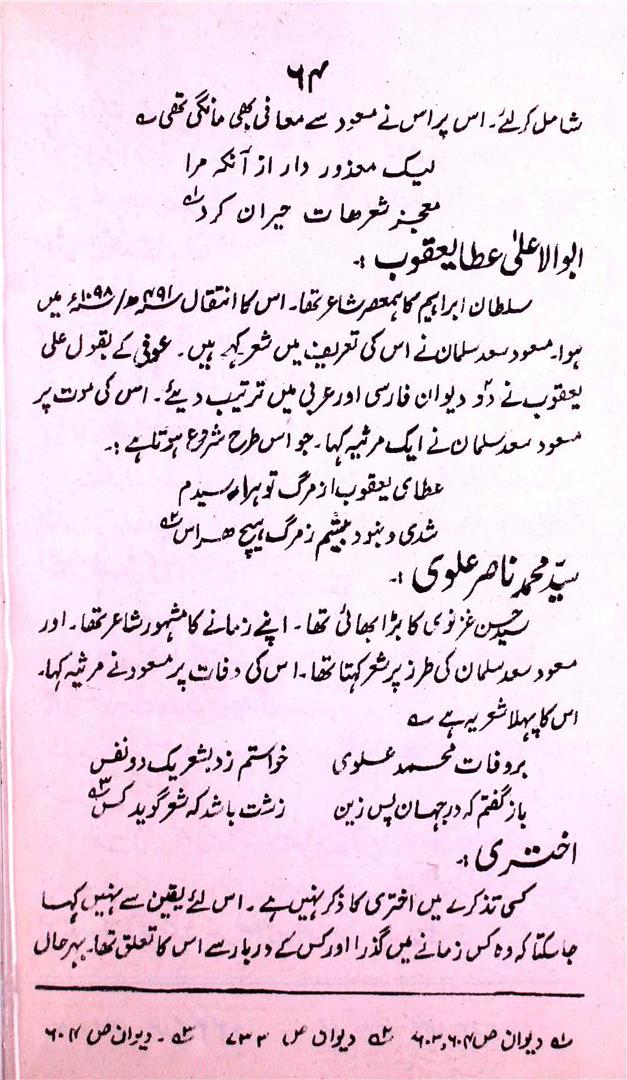 ۶۴
شامل کرلئے۔ اس پر اس نے مسعود سے معافی بھی مانگی تھی ؎
لیک معذور دار از آنکہ مرا
معجز شعرھات حیران کرد ؎۱
ابوالاعلیٰ عطا یعقوب :۔
سلطان ابراہیم کا ہمعصر شاعر تھا۔ اس کا انتقال ۴۹۱ھ/۱۰۹۸ء میں
ہوا۔ مسعود سعد سلمان نے اس کی تعریف میں شعر کہے ہیں۔ عوفی کے بقول علی
یعقوب نے دو دیوان فارسی اور عربی میں ترتیب دیئے۔ اس کی موت پر
مسعود سعد سلمان نے ایک مرثیہ کہا۔ جو اس طرح شروع ہوتا ہے :۔
عطای یعقوب از مرگ تو ہراسیدم
شدی و نبود بیشم ز مرگ ہیچ ھراس ؎۲
سید محمد ناصر علوی :۔
سید حسن غزنوی کا بڑا بھائی تھا۔ اپنے زمانے کا مشہور شاعر تھا۔ اور
مسعود سعد سلمان کی طرز پر شعر کہتا تھا۔ اس کی وفات پر مسعود نے مرثیہ کہا۔
اس کا پہلا شعر یہ ہے ؎
بروفات محمد علوی خواستم زد بشعر یک دو نفس
باز گفتم کہ در جہان پس زین زشت باشد کہ شعر گوید کس ؎۳
اختری :۔
کسی تذکرے میں اختری کا ذکر نہیں ہے۔ اس لئے یقین سے نہیں کہا
جا سکتا کہ وہ کس زمانے میں گذرا اور کس کے دربار سے اس کا تعلق تھا۔ بہر حال
؎۱ دیوان ص ۶۰۳،۶۰۴ ؎۲ دیوان ص ۷۳۳ ؎۳ ۔ دیوان ص ۶۰۴